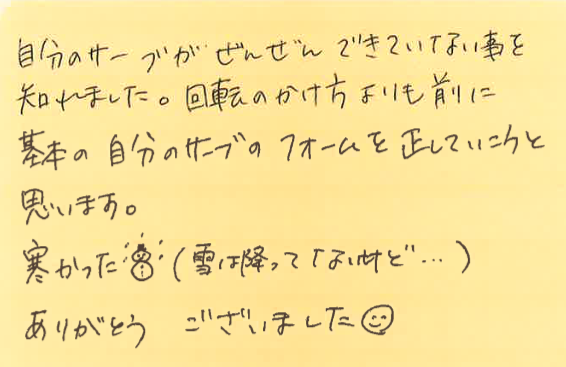 自分のサーブが ぜんぜん できていない事を
知れました。回転のかけ方よりも前に
基本の自分のサーブのフォームを正していこうと
思います。
寒かった☃(雪は降ってないけど…)
ありがとう ございました☺